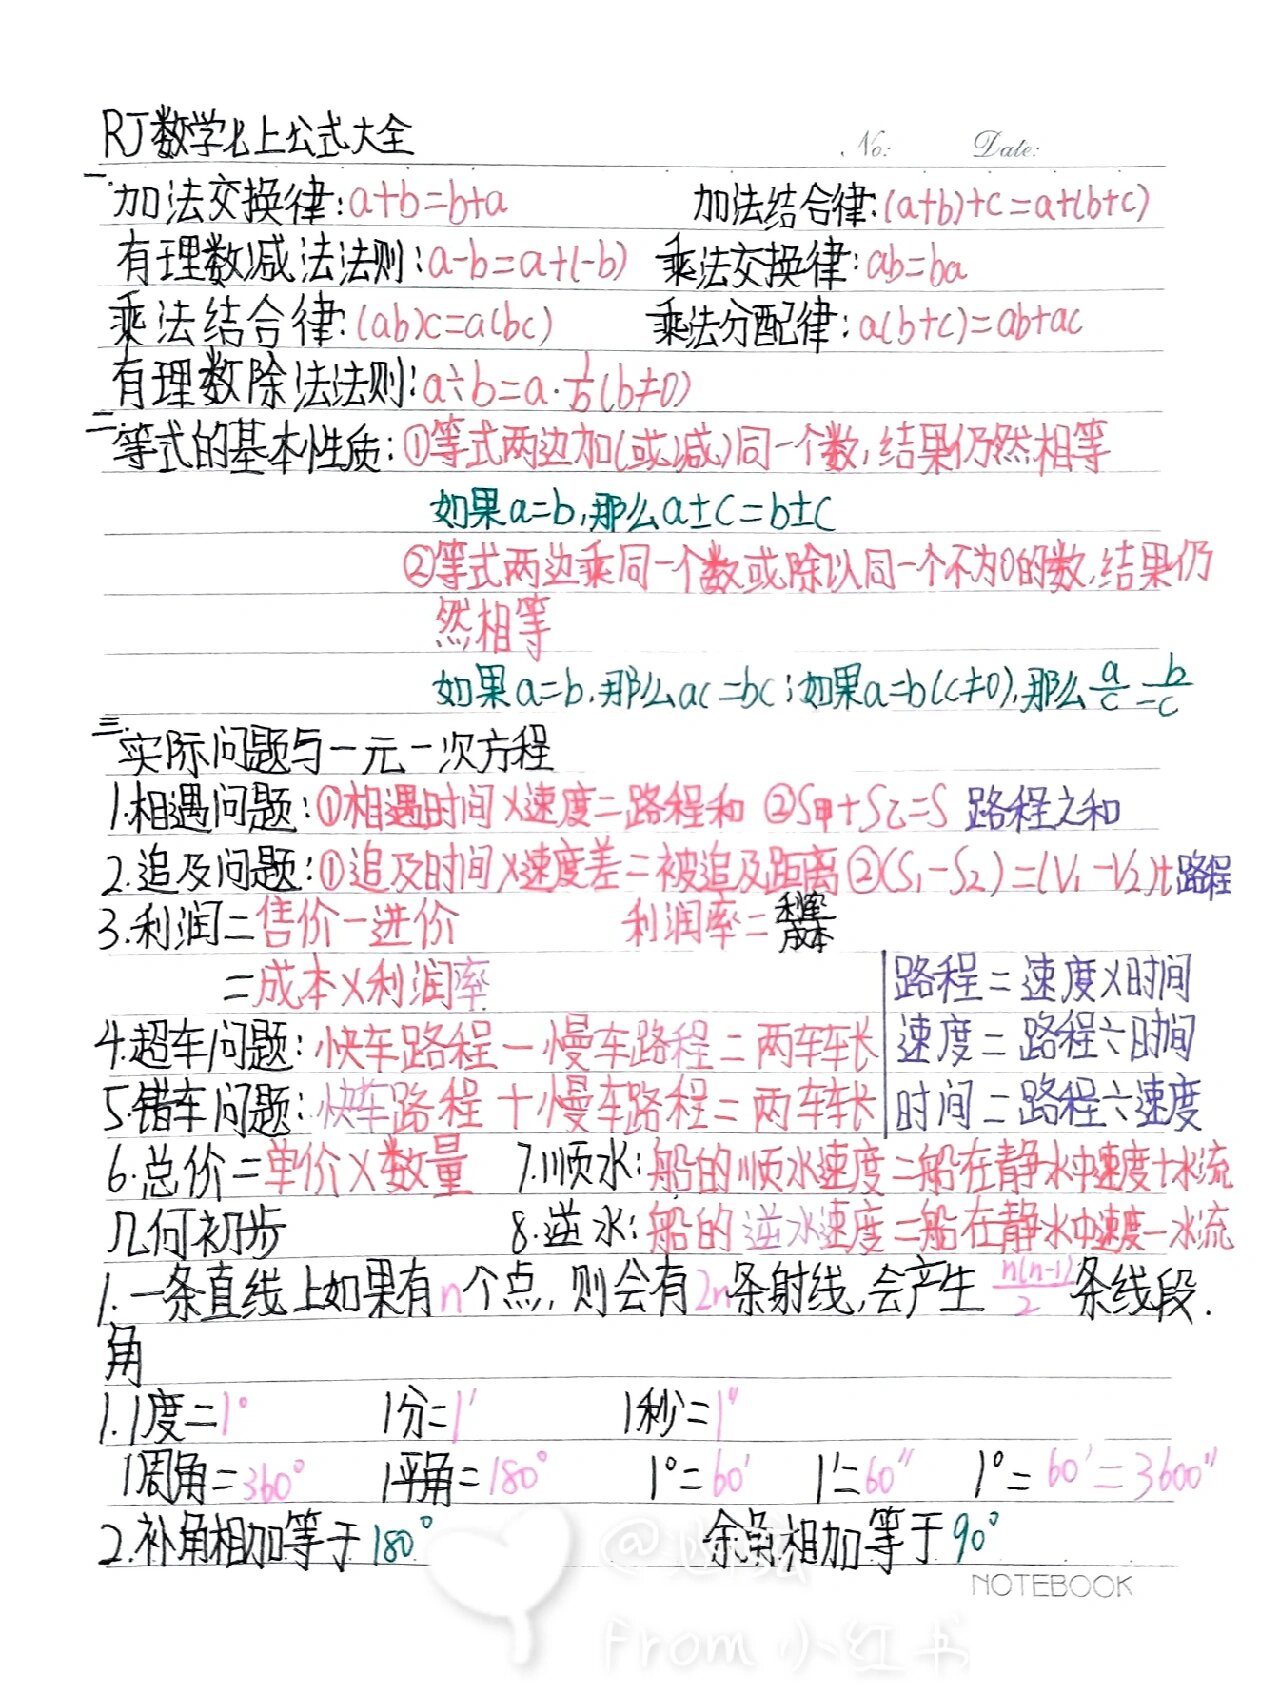 RJ数学七上公式大全
No: Date:
一.加法交换律:a+b=b+a 加法结合律:(a+b)+c=a+(b+c)
有理数减法法则:a-b=a+(-b) 乘法交换律:ab=ba
乘法结合律:(ab)c=a(bc) 乘法分配律:a(b+c)=ab+ac
有理数除法法则:a÷b=a·1/b(b≠0)
二.等式的基本性质:①等式两边加(或减)同一个数,结果仍然相等
如果a=b,那么a±c=b±c
②等式两边乘同一个数或除以同一个不为0的数,结果仍
然相等
如果a=b,那么ac=bc;如果a=b(c≠0),那么a/c=b/c
三.实际问题与一元一次方程
1.相遇问题:①相遇时间×速度=路程和 ②S甲+S乙=S 路程之和
2.追及问题:①追及时间×速度差=被追及距离②(S₁-S₂)=(V₁-V₂)t路程
3.利润=售价-进价 利润率=利润/成本
=成本×利润率
路程=速度×时间
4.超车问题:快车路程-慢车路程=两车车长
速度=路程÷时间
5.错车问题:快车路程+慢车路程=两车车长
时间=路程÷速度
6.总价=单价×数量 7.顺水:船的顺水速度=船在静水中速度+水流
几何初步 8.逆水:船的逆水速度=船在静水中速度-水流
1.一条直线上如果有n个点,则会有2n条射线,会产生n(n-1)/2条线段.
角
1.1度=1° 1分=1′ 1秒=1″
1周角=360° 1平角=180° 1°=60′ 1′=60″ 1°=60′=3600″
2.补角相加等于180° 余角相加等于90°
NOTEBOOK
from 小红书